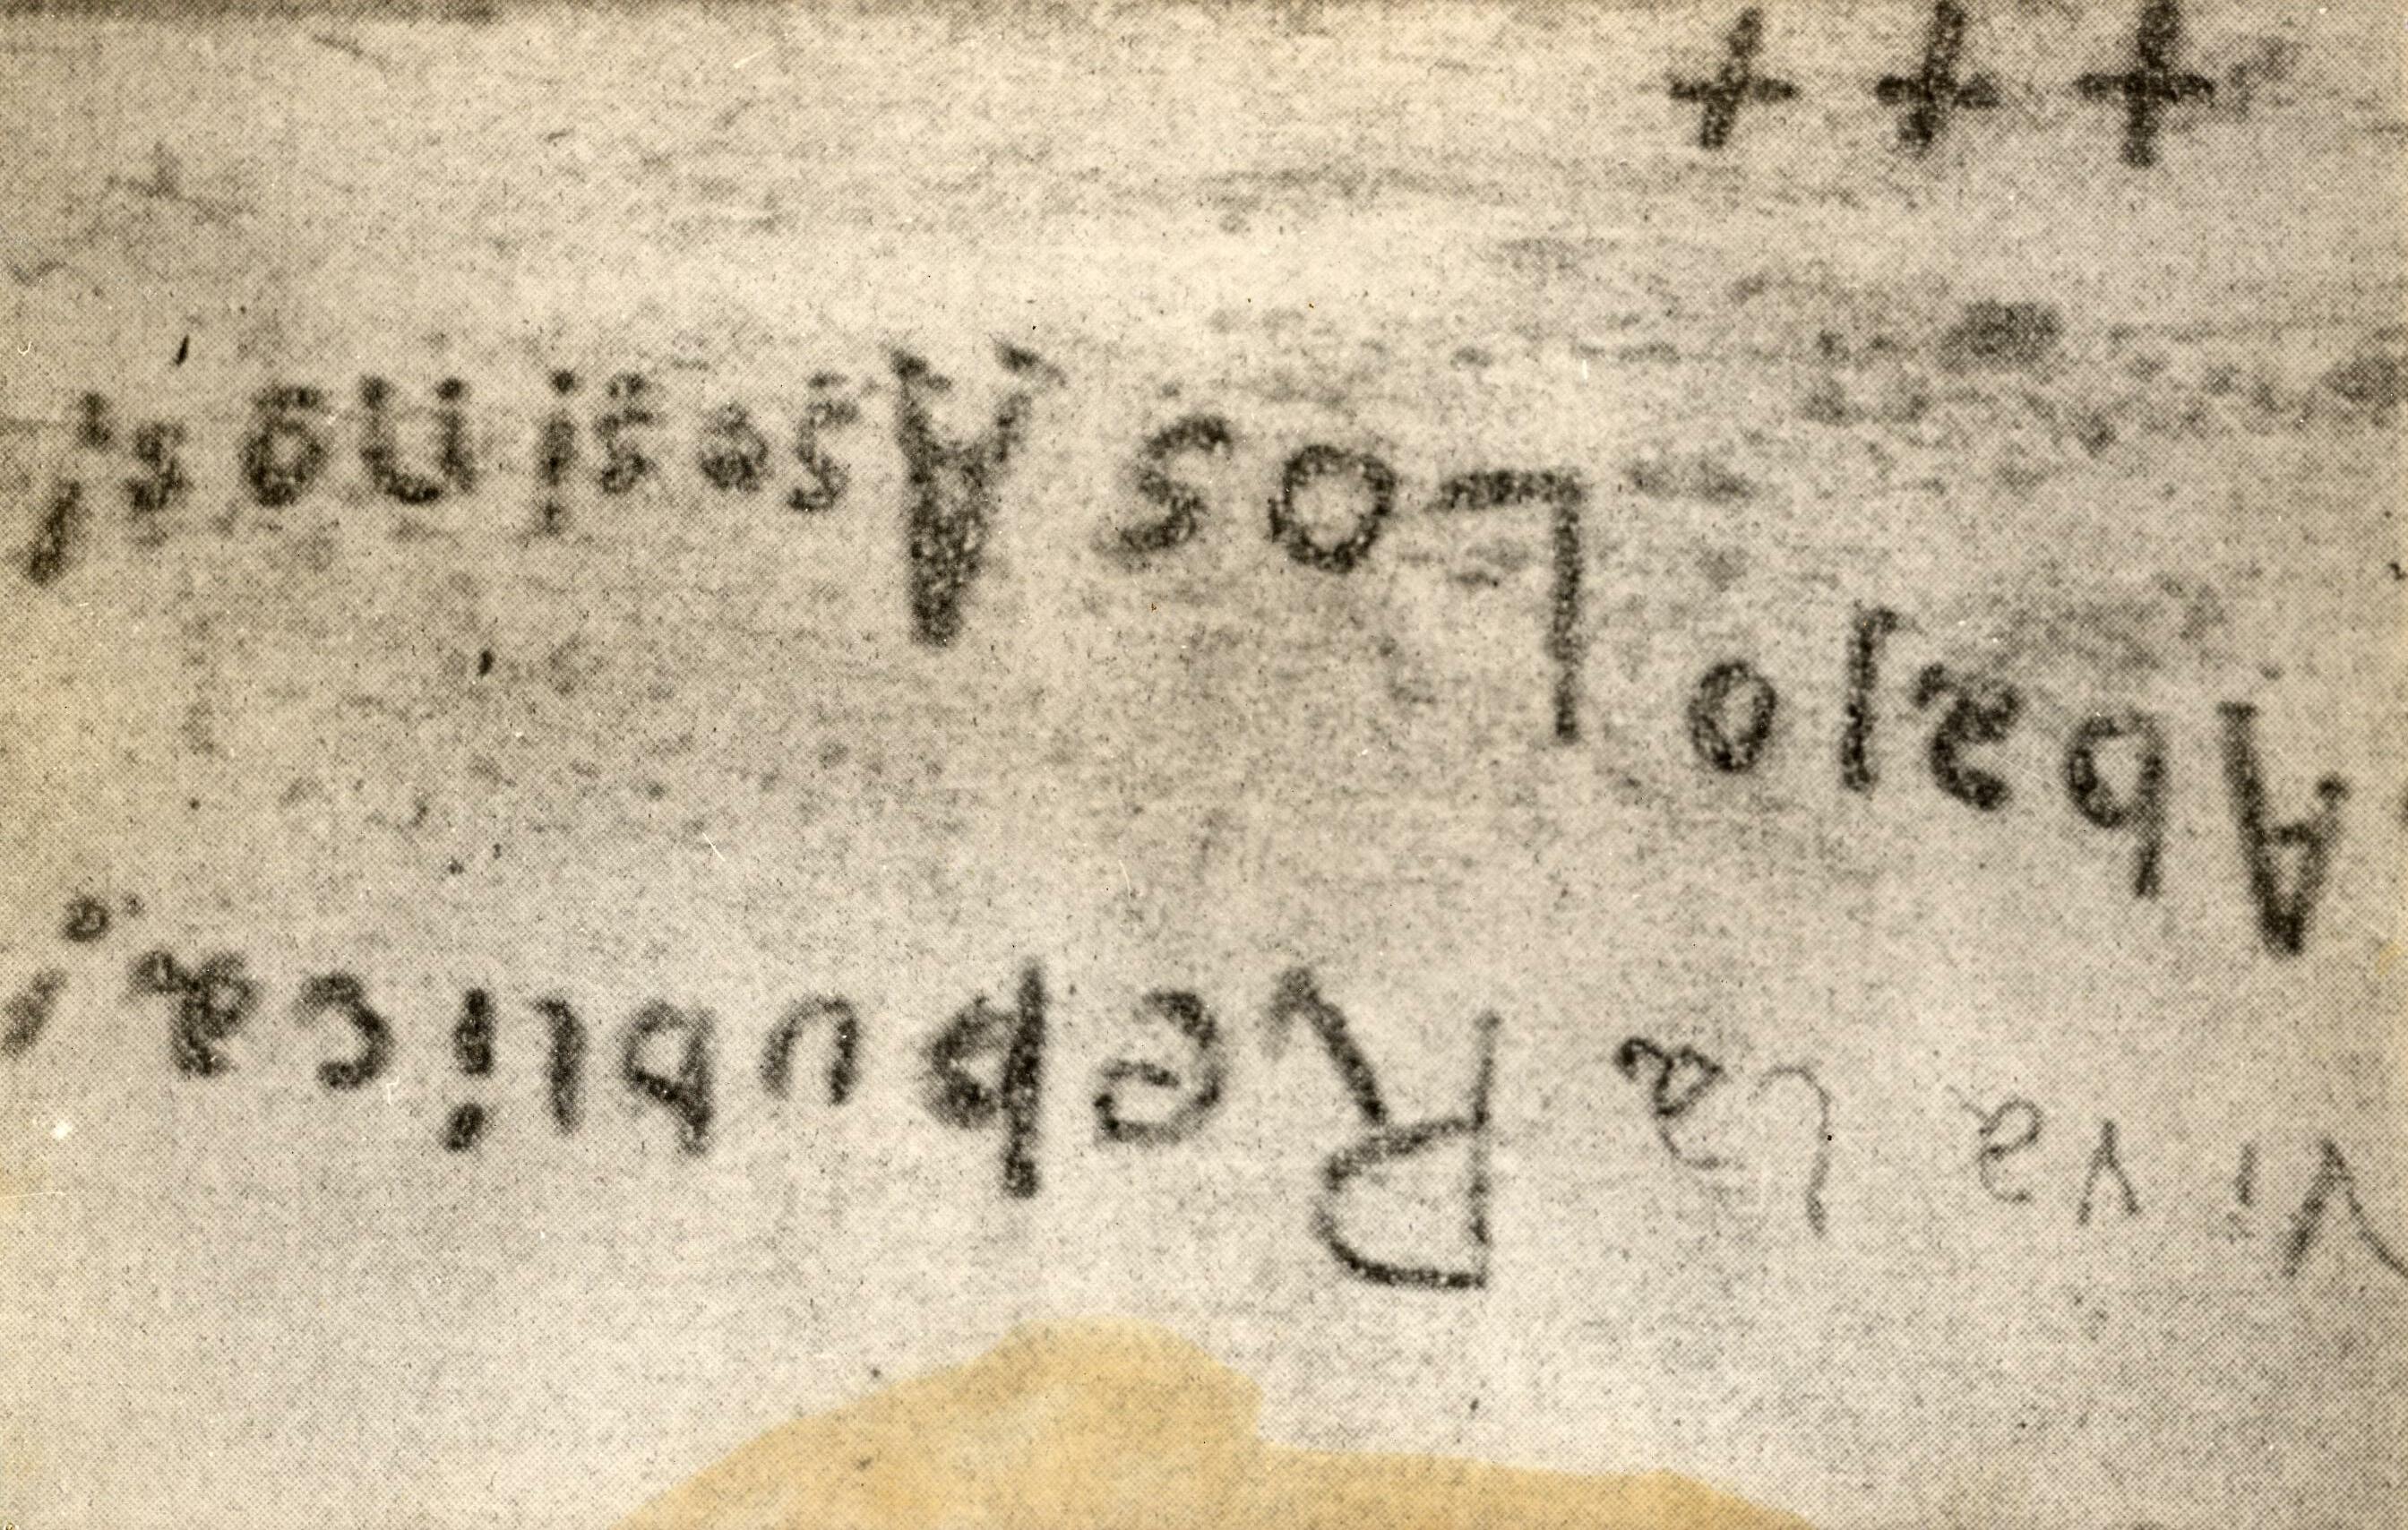 Viva la Republica!
Abajo Los Asesinos!
+++